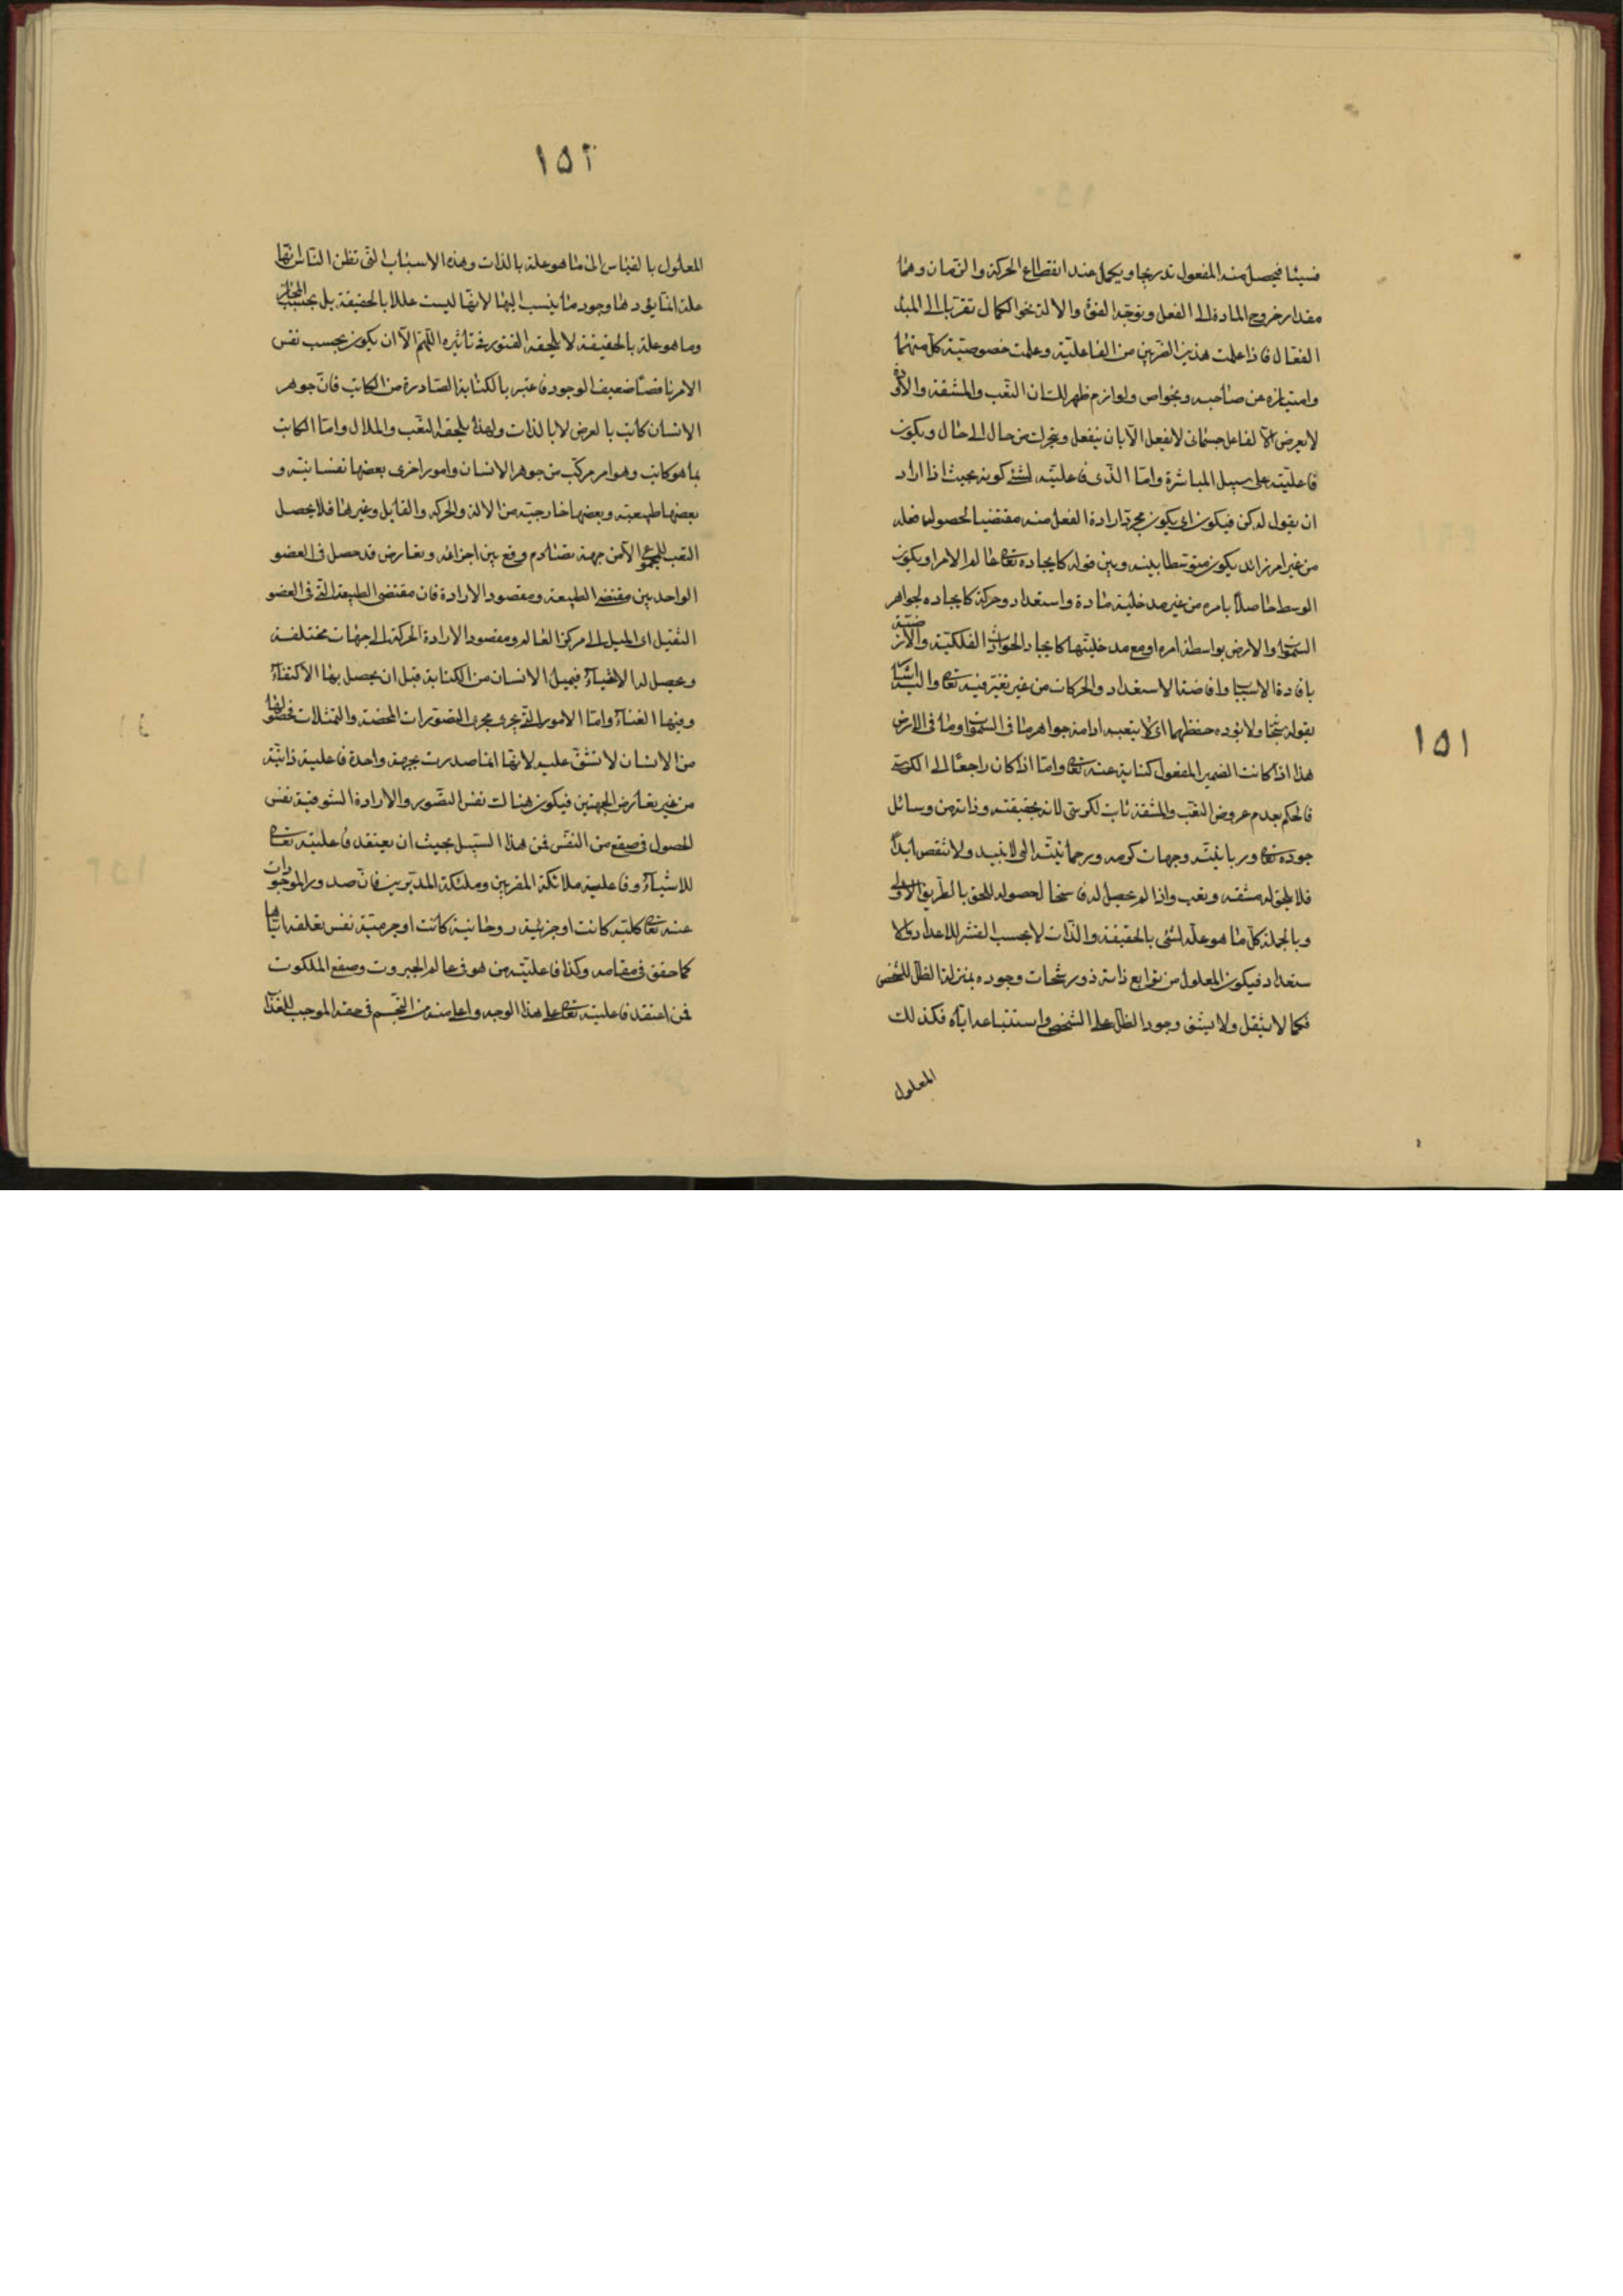 فشيئا فيحصل منه المفعول تدريجا ويكمل عند انقطاع الحركة والزمان وهما
مقدار خروج المادة الى الفعل وتوجه القوى والالة نحو الكمال تقربا الى المبدء
الفعال فاذا علمت هذين الضربين من الفاعلية وعلمت خصوصية كل منهما
وامتيازه عن صاحبه وبخواص ولوازم ظهر لك ان التعب والمشقة والاود
لا يعرض الا لفاعل جسمانى لا يفعل الا بان ينفعل ويتحرك من حال الى حال ويكون
فاعليته على سبيل المباشرة واما الذى فاعليته لشئ كونه بحيث اذا اراد
ان يقول له كن فيكون اى يكون مجرد ارادة الفعل منه مقتضيا لحصوله
من غير امر زائد يكون متوسطا بينه وبين قوله كايجاده تعالى عالم الامر او يكون
الوسط حاصلا بامره من غير مدخلية مادة واستعداد وحركة كايجاده لجواهر
السموات والارض بواسطة امره او مع مدخليتها كايجاد الحوادث الفلكية والارضية
بافادة الاسباب وافاضة الاستعداد والحركات من غير تغير فيه تعالى واليه اشار
بقوله سبحانه ولا يؤده حفظهما اى لا يتعبه ادامة جواهر ما فى السموات وما فى الارض
هذا اذا كانت الضمير المفعول كناية عنه تعالى واما اذا كان راجعا الى الكرسى
فالحكم بعدم عروض التعب والمشقة ثابت لكرسى لانه بحقيقته وذاته من وسائل
جوده تعالى وربانيته وجهات كرمه ورحمانيته التى لا تبيد ولا تنقص ابدا
فلا يلحق له مشقة وتعب واذا لم يحصل له لحصوله للحق بالطريق الاولى
وبالجملة كل ما هو علة لشئ بالحقيقة والذات لا بحسب القشر للاعداد والا
ستعداد فيكون المعلول من توابع ذاته ذو رشحات وجوده بمنزلة الظل للشخص
فكما لا يثقل ولا يشق وجود الظل على الشخص واستتباعه اياه فكذلك
المعلول
١٥١
١٥٢
المعلول بالقياس الى ما هو علة بالذات وهذه الاسباب التى تظن الناس انها
علة انما يؤدها وجود ما ينسب اليها لانها ليست عللا بالحقيقة بل بحسب المجاز
وما هو علة بالحقيقة لا يلحقه الفتور فى تاثيره اللهم الا ان يكون بحسب نفس
الامر ناقصا ضعيف الوجود فاعتبر بالكتابة الصادرة من الكاتب فان جوهر
الانسان كاتب بالعرض لا بالذات ولهذا يلحقه التعب والملال واما الكاتب
بما هو كاتب وهو امر مركب من جوهر الانسان وامور اخرى بعضها نفسانية و
بعضها طبيعية وبعضها خارجية من الالة والحركة والقابل وغيرها فلا يحصل
التعب للمجموع الا من جهة تصادم وقع بين اجزائه وتعارض قد حصل فى العضو
الواحد بين مقتضى الطبيعة ومقصود الارادة فان مقتضى الطبيعة التى فى العضو
الثقيل اى الميل الى مركز العالم ومقصود الارادة الحركة الى جهات مختلفة
ويحصل له الاعياء فيميل الانسان من الكتابة قبل ان يحصل بها الاكتفاء
وفيها الغناء واما الامور التى يجرى مجرى التصورات المحضة والتمثلات فحصولها
من الانسان لا تشق عليه لانها انما صدرت بجهة واحدة فاعلية ذاتية
من غير تعارض الجهتين فيكون هناك نفس التصور والارادة الشوقية نفس
الحصول فى صقع من النفس فمن هذا السبيل يجب ان يعتقد فاعليته تعالى
للاشياء وفاعلية ملائكة المقربين وملئكة المدبرين فان صدور الموجودات
عنه تعالى كلية كانت او جزئية روحانية كانت او جرمية نفس تعلقه اياها
كما حقق فى مقامه وكذا فاعلية من هو فى عالم الجبروت وصقع الملكوت
فمن اعتقد فاعليته تعالى على هذا الوجه واعلى منه من التجسم فى حقه الموجب للغذاء